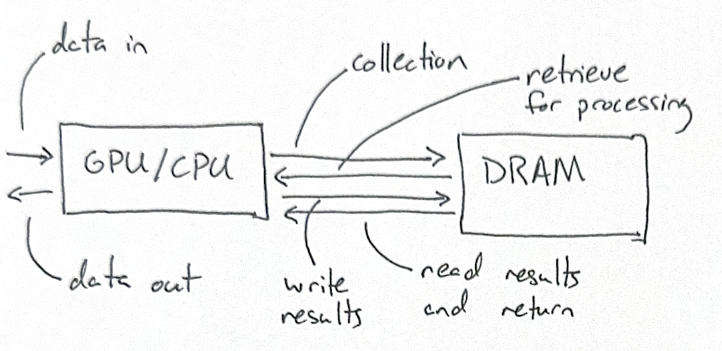 data in
collection
retrieve
for processing
GPU/CPU
DRAM
data out
write
results
read results
and return